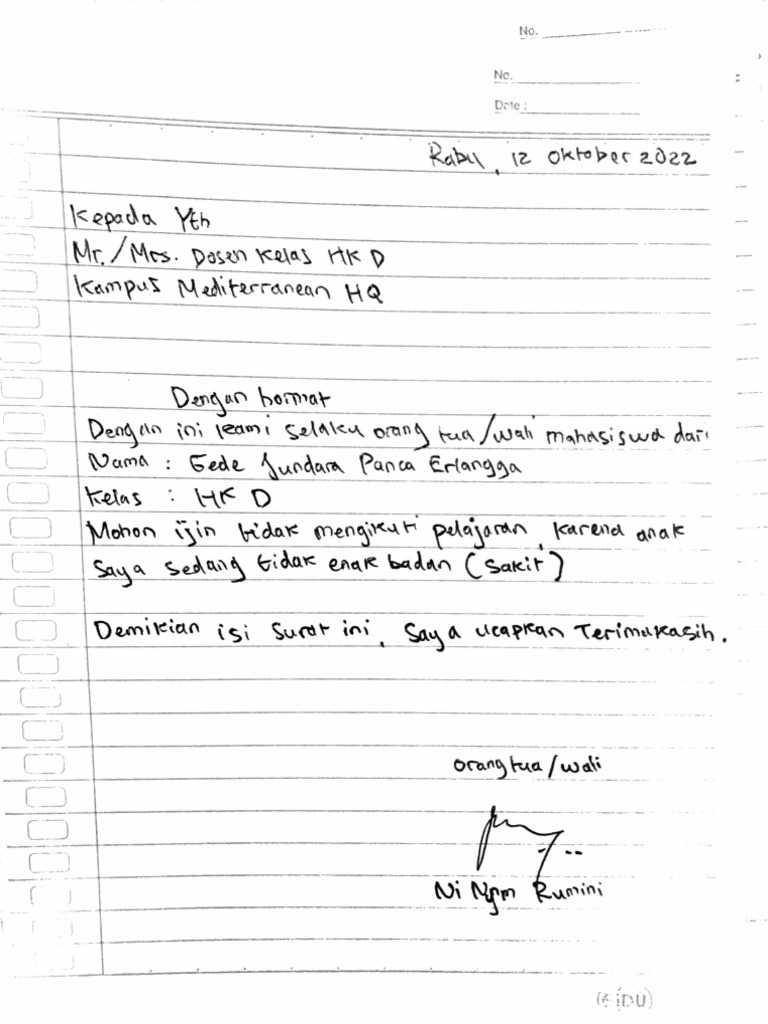 No.
No.
Date :
Rabu, 12 Oktober 2022
Kepada Yth
Mr./Mrs. Dosen Kelas HK D
Kampus Mediterranean HQ
Dengan hormat
Dengan ini kami selaku orang tua/wali mahasiswa dari
Nama : Gede Jundara Panca Erlangga
Kelas : HK D
Mohon ijin tidak mengikuti pelajaran, karena anak
saya sedang tidak enak badan (sakit)
Demikian isi surat ini, Saya ucapkan Terimakasih.
orang tua/wali
Ni Rumini